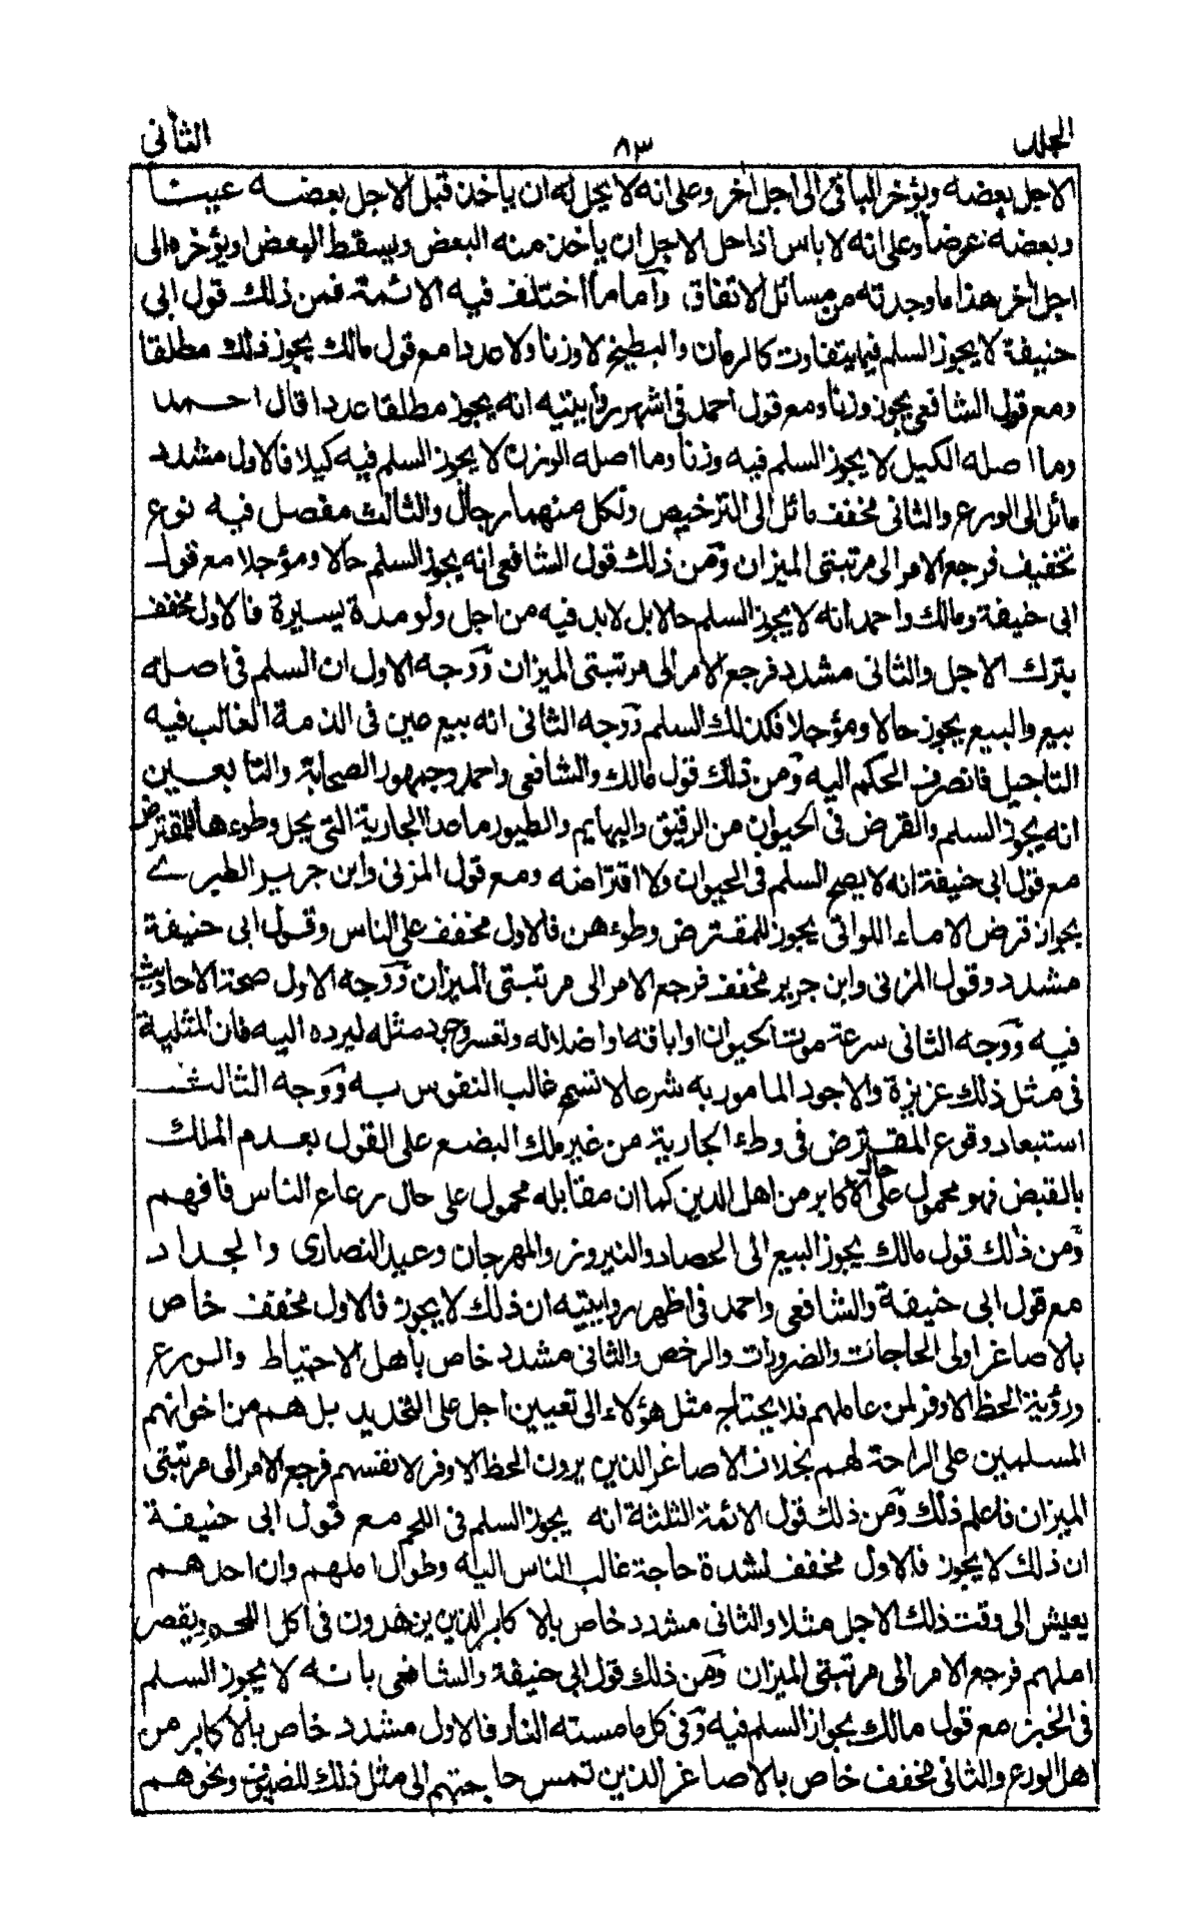 المجلد ٨٣ الثاني
الاجل بعضه ويؤخر الباقي الى اجل آخر وعلى انه لا يحل له ان ياخذ قبل الاجل بعضه عينا
وبعضه عرضا وعلى انه لا باس اذا حل الاجل ان ياخذ منه البعض ويسقط البعض او يؤخره الى
اجل آخر هذا ما وجدته من مسائل الاتفاق واما ما اختلف فيه الائمة فمن ذلك قول ابي
حنيفة لا يجوز السلم فيما يتفاوت كالرمان والبطيخ لا وزنا ولا عددا مع قول مالك يجوز ذلك مطلقا
ومع قول الشافعي يجوز وزنا ومع قول احمد في اشهر روايتيه انه يجوز مطلقا عددا قال احمد
وما اصله الكيل لا يجوز السلم فيه وزنا وما اصله الوزن لا يجوز السلم فيه كيلا فالاول مشدد
مائل الى الورع والثاني مخفف مائل الى الترخيص ولكل منهما رجال والثالث مفصل فيه نوع
تخفيف فرجع الامر الى مرتبتي الميزان ومن ذلك قول الشافعي انه يجوز السلم حالا ومؤجلا مع قول
ابي حنيفة ومالك واحمد انه لا يجوز السلم حالا بل لا بد فيه من اجل ولو مدة يسيرة فالاول مخفف
بترك الاجل والثاني مشدد فرجع الامر الى مرتبتي الميزان ووجه الاول ان السلم في اصله
بيع والبيع يجوز حالا ومؤجلا فكذلك السلم ووجه الثاني انه بيع عين في الذمة الغالب فيه
التاجيل فانصرف الحكم اليه ومن ذلك قول مالك والشافعي واحمد وجمهور الصحابة والتابعين
انه يجوز السلم والقرض في الحيوان من الرقيق والبهايم والطيور ما عدا الجارية التي يحل وطوءها للمقترض
مع قول ابي حنيفة انه لا يصح السلم في الحيوان ولا اقتراضه ومع قول المزني وابن جرير الطبري
بجواز قرض الاماء اللواتي يجوز للمقترض وطوءهن فالاول مخفف على الناس وقول ابي حنيفة
مشدد وقول المزني وابن جرير مخفف فرجع الامر الى مرتبتي الميزان ووجه الاول صحة الاحاديث
فيه ووجه الثاني سرعة موت الحيوان او اباقه او اضلاله وتعسر وجود مثله ليرده اليه فان المثلية
في مثل ذلك عزيزة والاجود المامور به شرعا لا تسمح غالب النفوس به ووجه الثالث
استبعاد وقوع المقترض في وطء الجارية من غير ملك البضع على القول بعدم الملك
بالقبض فهو محمول على حال الاكابر من اهل الدين كما ان مقابله محمول على حال رعاع الناس فافهم
ومن ذلك قول مالك يجوز البيع الى الحصاد والنيروز والمهرجان وعيد النصارى والجداد
مع قول ابي حنيفة والشافعي واحمد في اظهر روايتيه ان ذلك لا يجوز فالاول مخفف خاص
بالاصاغر اولى الحاجات والضرورات والرخص والثاني مشدد خاص باهل الاحتياط والورع
ورؤية الحظ الاوفر لمن عاملهم فلا يحتاج مثل هؤلاء الى تعيين اجل على التحديد بل هم من اخوانهم
المسلمين على الراحة لهم بخلاف الاصاغر الذين يرون الحظ الاوفر لانفسهم فرجع الامر الى مرتبتي
الميزان فاعلم ذلك ومن ذلك قول الائمة الثلثة انه يجوز السلم في اللحم مع قول ابي حنيفة
ان ذلك لا يجوز فالاول مخفف لشدة حاجة غالب الناس اليه وطول املهم وان احدهم
يعيش الى وقت ذلك الاجل مثلا والثاني مشدد خاص بالاكابر الذين يزهدون في اكل اللحم ويقصر
املهم فرجع الامر الى مرتبتي الميزان ومن ذلك قول ابي حنيفة والشافعي بانه لا يجوز السلم
في الخبز مع قول مالك بجواز السلم فيه وفي كل ما مسته النار فالاول مشدد خاص بالاكابر من
اهل الورع والثاني مخفف خاص بالاصاغر الذين تمس حاجتهم الى مثل ذلك للضيف ونحوهم